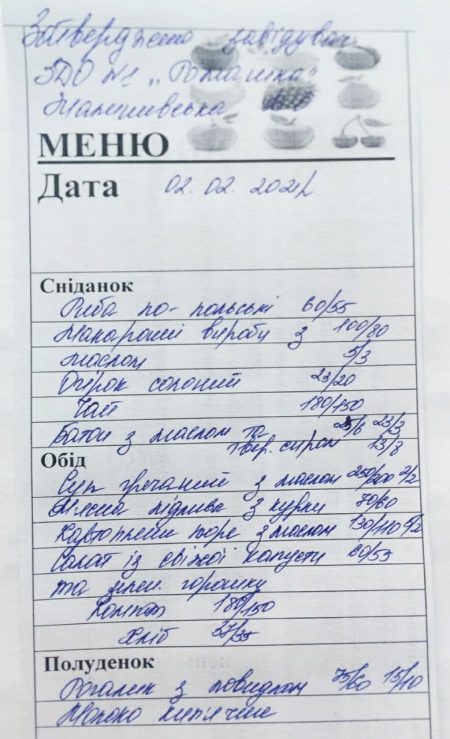 Затверджено завідувач
ЗДО №1 „Ромашка"
МЕНЮ
Дата 02.02.2021
Сніданок
Риба по-польські 60/55
Макаронні вироби з 100/80
маслом 5/3
Огірок солоний 23/20
Чай 180/150
Батон з маслом та 25/6 23/3
твер. сиром 13/8
Обід
Суп гречаний з маслом 250/200 2/2
М'ясна підлива з курки 70/60
Картопляне пюре з маслом 130/110
Салат із свіжої капусти 60/55
та зелен. горошку
Компот 180/150
Хліб
Полуденок
Рогалик з повидлом 75/60 15/10
Молоко кип'ячене